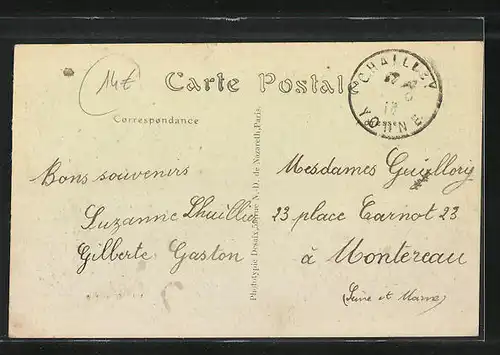 14€
Carte Postale
CHAILLEY
YONNE
17
Correspondance
Bons souvenirs
Suzanne Lhuillier
Gilberte Gaston
Phototypie Desaix, rue N.-D. de Nazareth, Paris.
Mesdames Guillory
23 place Carnot 23
à Montereau
(Seine et Marne)